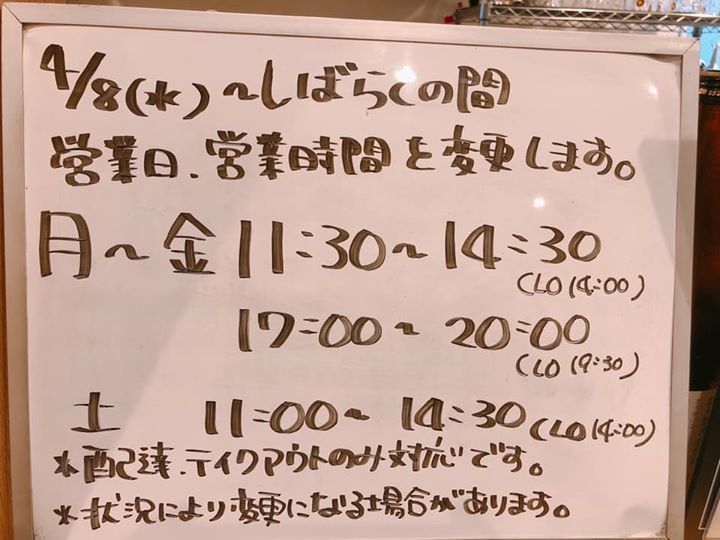 4/8(水)~しばらくの間
営業日、営業時間を変更します。
月~金 11:30~14:30
(LO 14:00)
17:00~20:00
(LO 19:30)
土 11:00~14:30(LO 14:00)
*配達、テイクアウトのみ対応です。
*状況により変更になる場合があります。